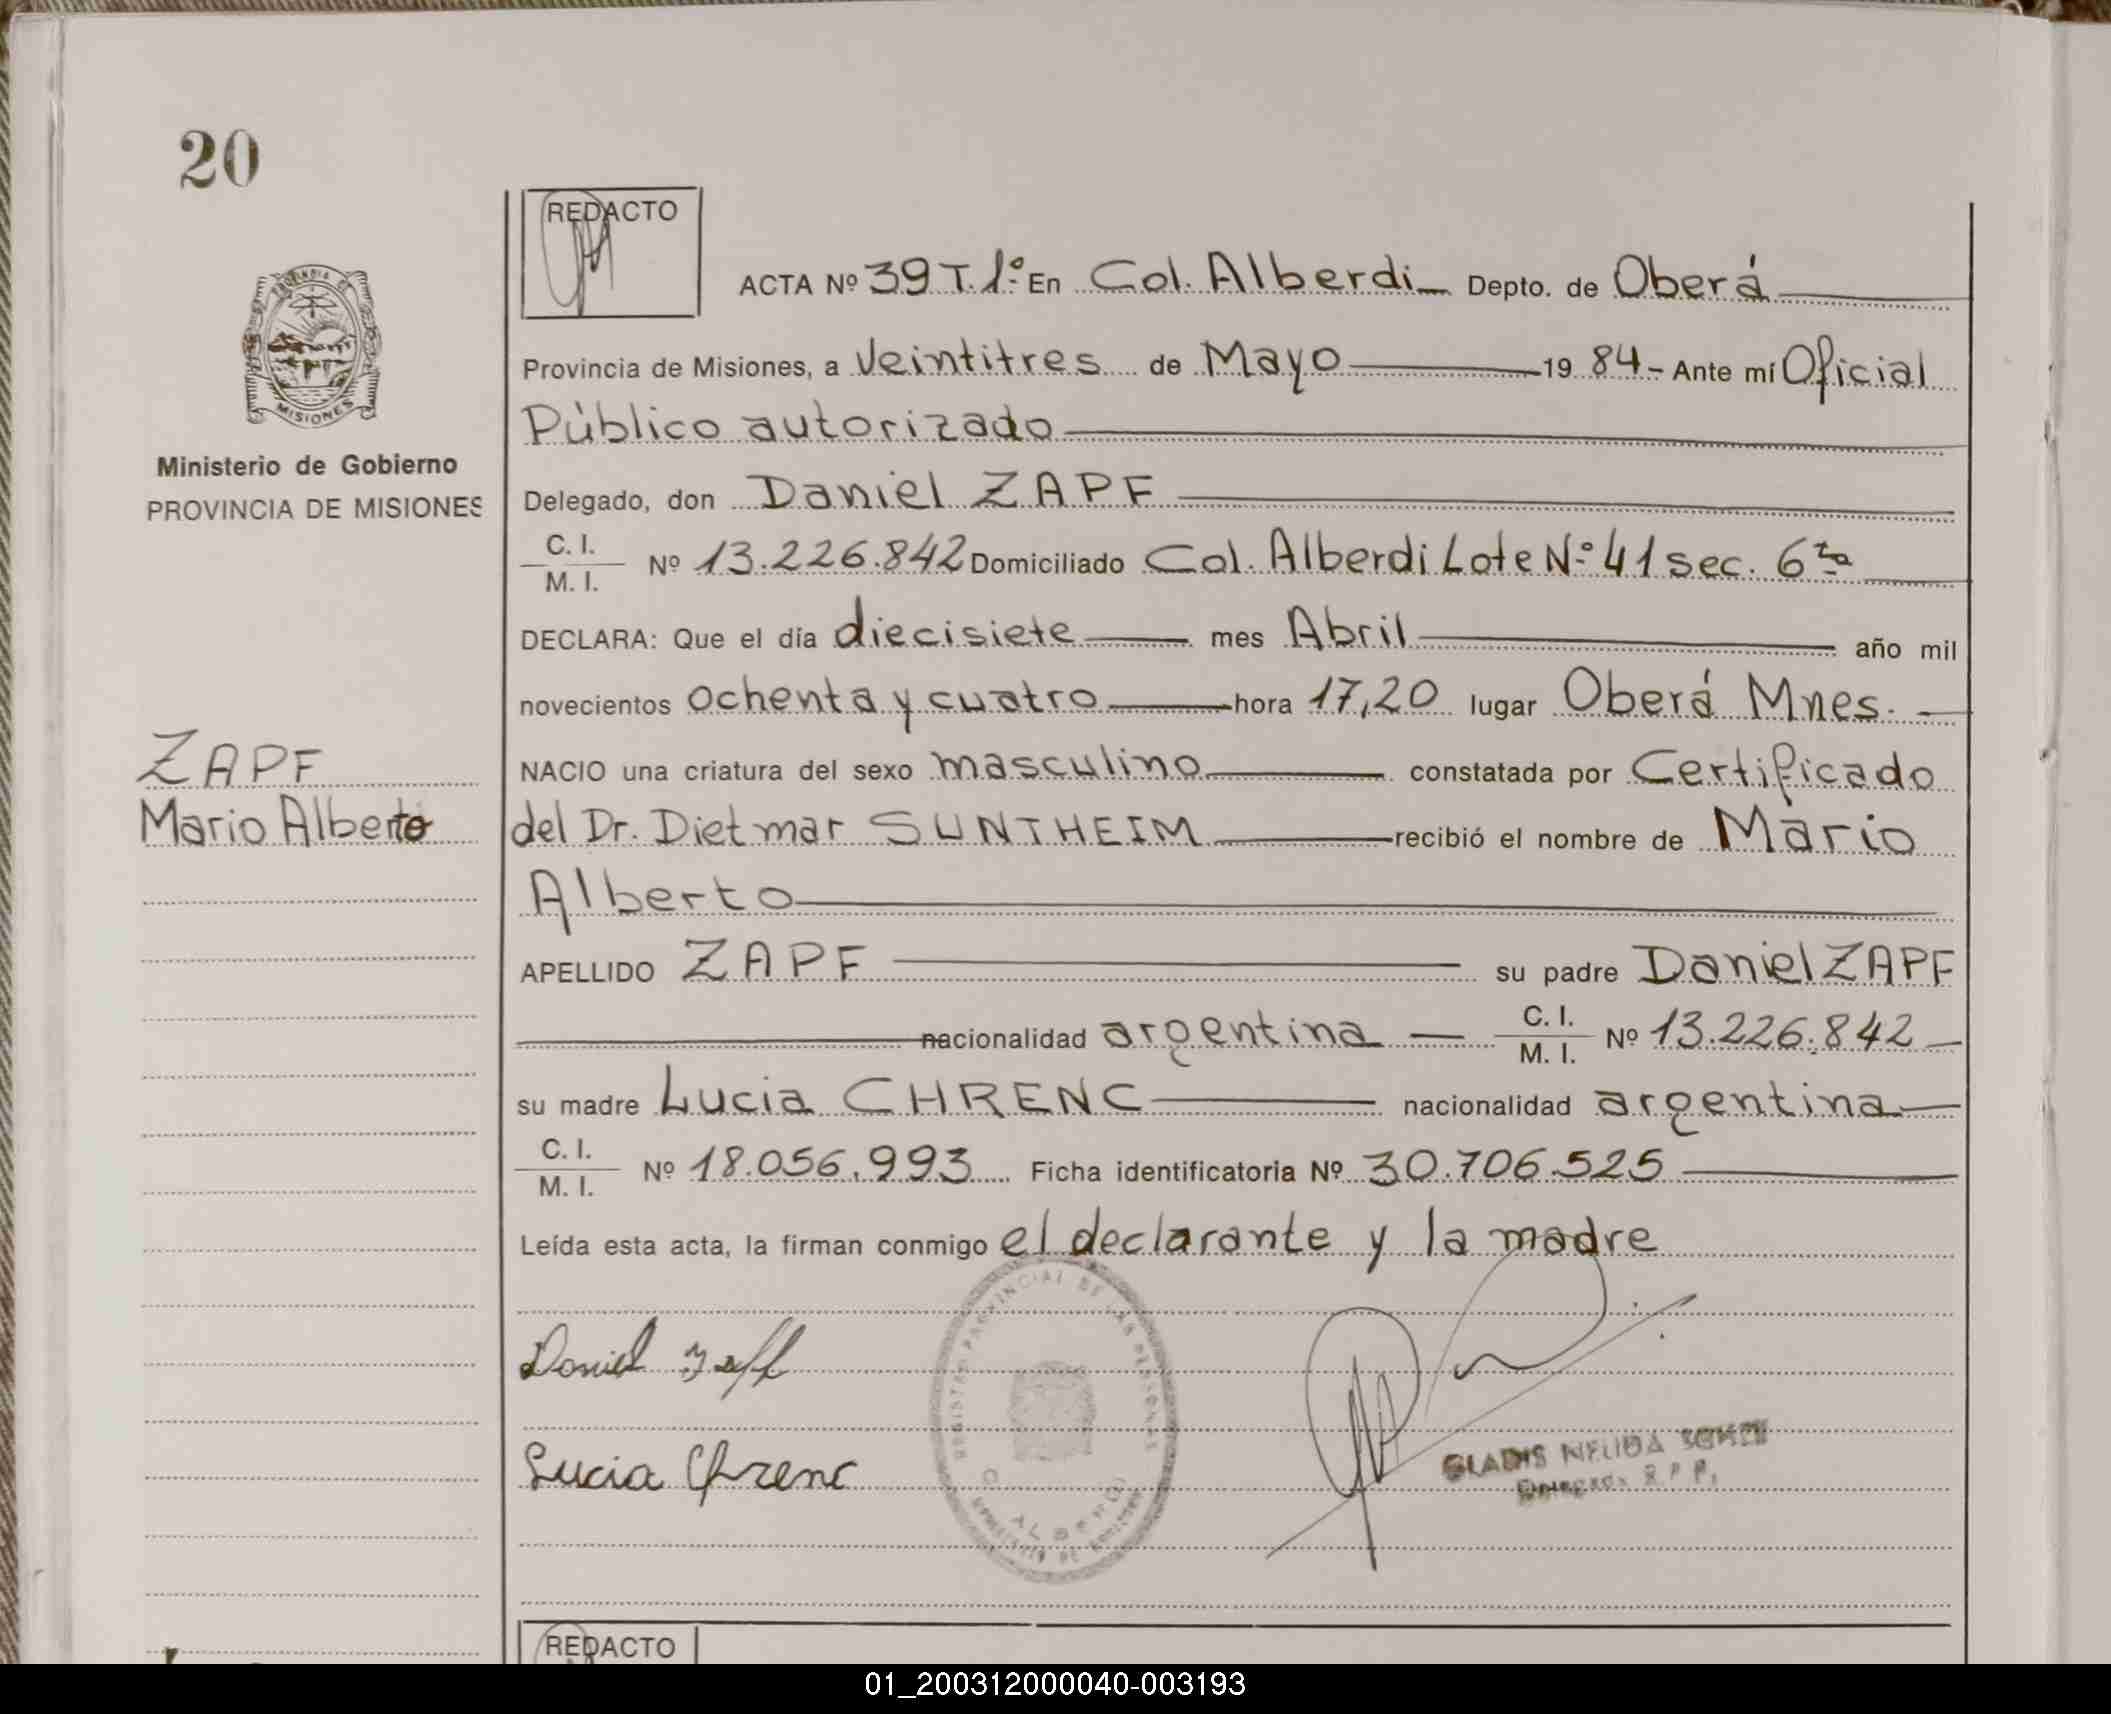 20
REDACTO
ACTA Nº 39 T. 1º En Col. Alberdi Depto. de Oberá
Provincia de Misiones, a veintitres de Mayo 19 84 - Ante mí Oficial
Público autorizado
Ministerio de Gobierno
PROVINCIA DE MISIONES
Delegado, don Daniel ZAPF
C. I.
M. I. Nº 13.226.842 Domiciliado Col. Alberdi Lote Nº 41 sec. 6ta
DECLARA: Que el día diecisiete mes Abril año mil
novecientos ochenta y cuatro hora 17,20 lugar Oberá Mnes.
NACIO una criatura del sexo masculino constatada por Certificado
ZAPF
Mario Alberto
del Dr. Dietmar SUNTHEIM recibió el nombre de Mario
Alberto
APELLIDO ZAPF su padre Daniel ZAPF
nacionalidad argentina C. I.
M. I. Nº 13.226.842
su madre Lucia CHRENC nacionalidad argentina
C. I.
M. I. Nº 18.056.993 Ficha identificatoria Nº 30.706.525
Leída esta acta, la firman conmigo el declarante y la madre
Daniel Zapf
Lucia Chrenc
REGISTRO PROVINCIAL DE LAS PERSONAS
GLADIS NELIDA
R. P. P.
REDACTO
01_200312000040-003193